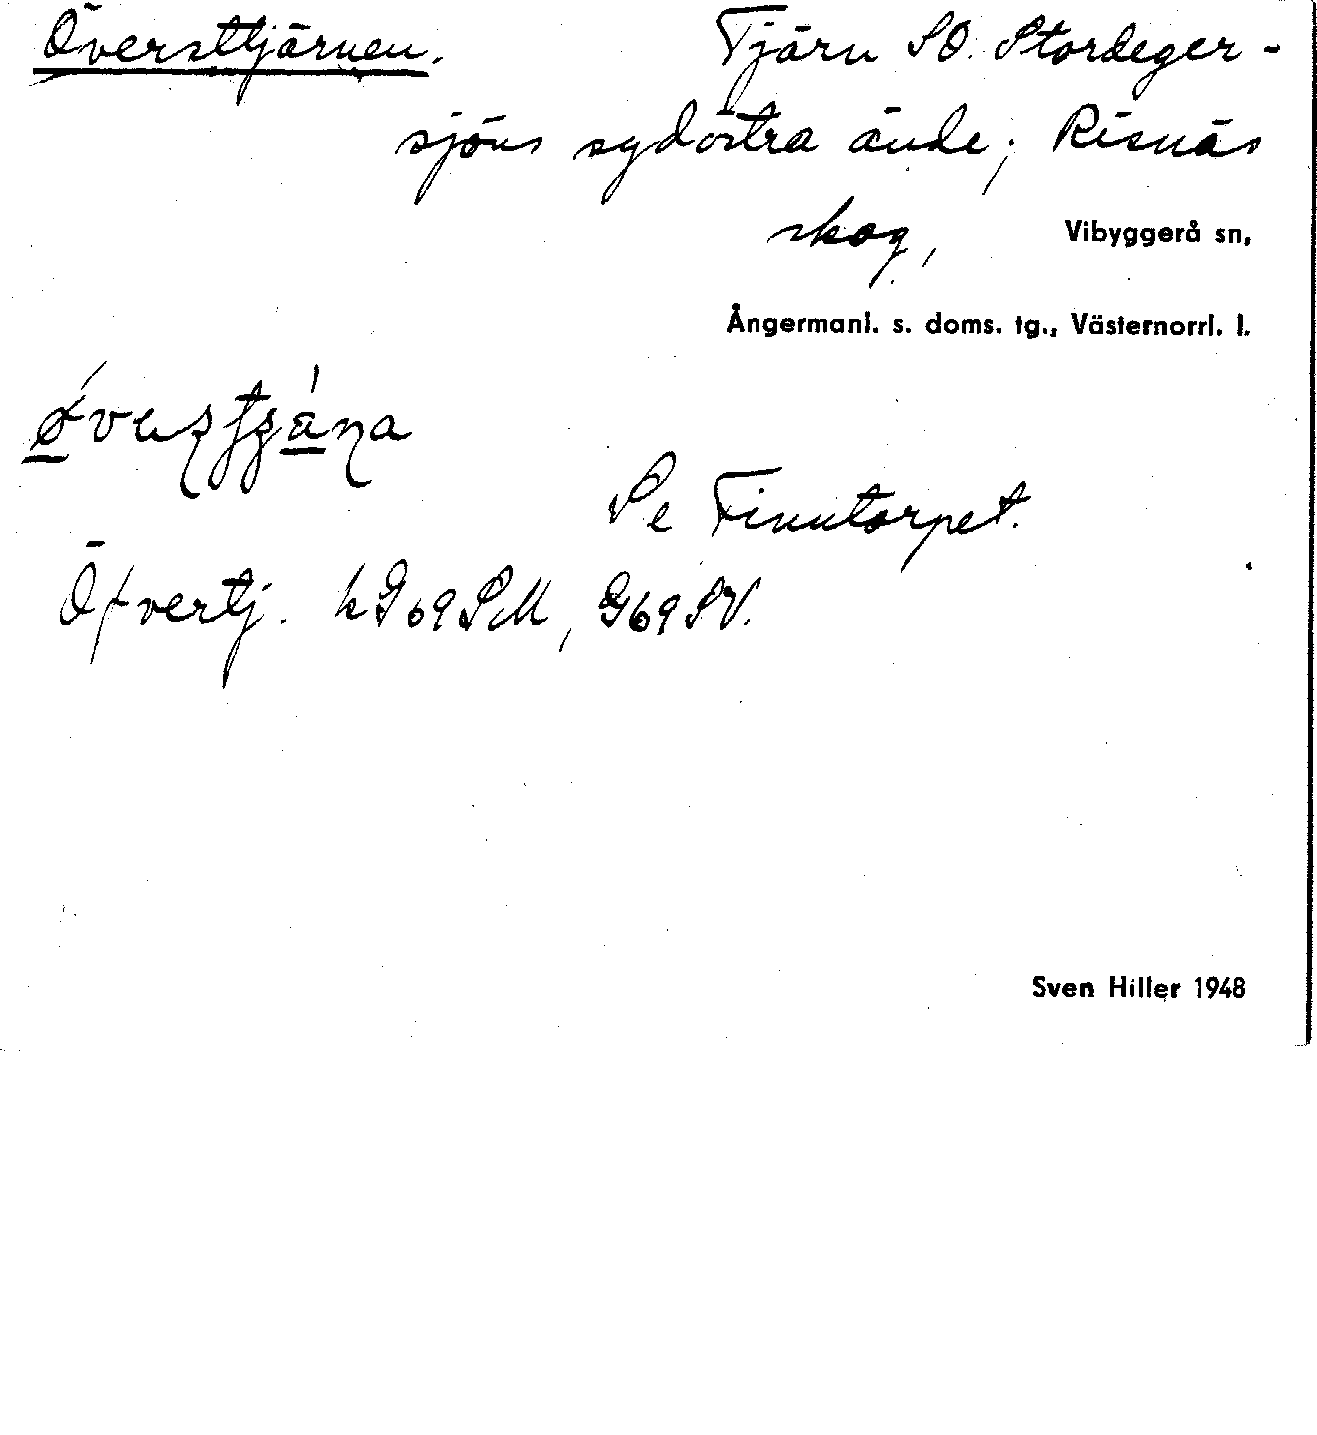 Översttjärnen. Tjärn SO. Stordeger-
sjöns sydöstra ände; Risnäs
skog, Vibyggerå sn,
Ångermanl. s. doms. tg., Västernorrl. l.
Se Finntorpet.
Öfvertj. kG69SM, G69SV.
Sven Hiller 1948